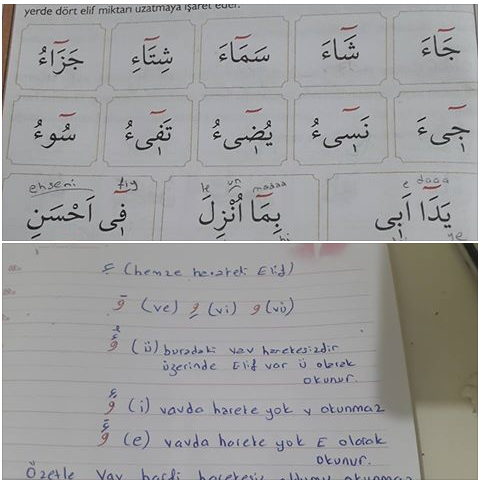 yerde dört elif miktarı uzatmaya işaret eder.
جَٓاءَ شَٓاءَ سَمَٓاءَ شِتَٓاءِ جَزَٓاءُ
جِٓىءَ نَسِٓىءُ يُضِٓىءُ تَفِٓىءُ سُٓوءُ
e daaa un madaaa fiy ehseni
يَدَٓا اَبِى بِمَٓا اُنْزِلَ فِٓى اَحْسَنِ
ye
ء (hemze harateli Elif)
وَ (ve) وِ (vi) وُ (vü)
ؤُ (ü) buradaki vav harekesizdir
üzerinde Elif var ü olarak
okunur.
ؤِ (i) vavda hareke yok v okunmaz
ؤَ (e) vavda hareke yok E olarak
okunur.
Özetle vav harfi harekesiz